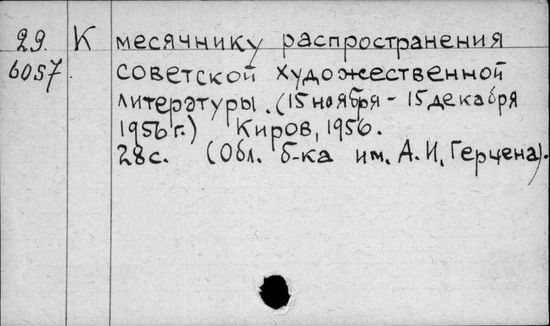 29. К месячнику распространения
6057. советской художественной
литературы. (15 ноября - 15 декабря
1956 г.) Киров, 1956.
28с. (Обл. б-ка им. А.И. Герцена).